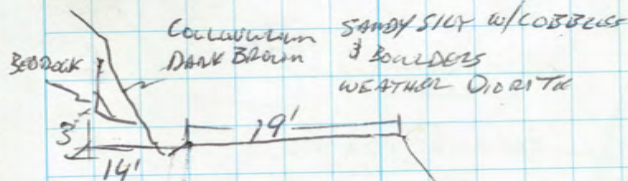 Colluvium
DARK BROWN
SANDY SILT W/COBBLES
& BOULDERS
WEATHER DIORITE
BEDROCK
3'
19'
14'